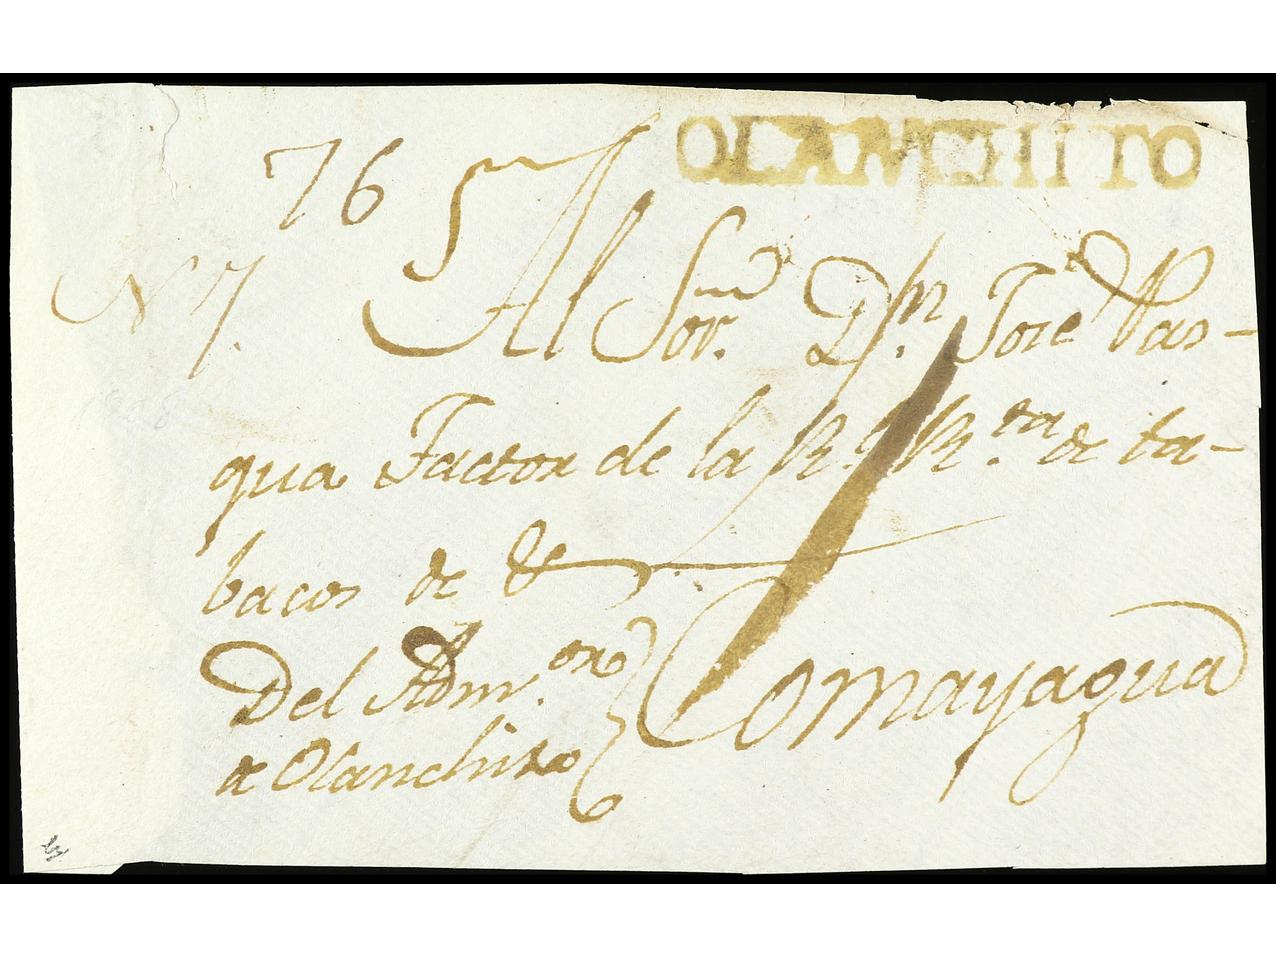 OLANCHITO
76
N 7.
Al Sor. Dn. Jose Vas-
qua Factor de la Rl. Rta. de ta-
bacos de &
Del Admor.
de Olanchito
Comayagua